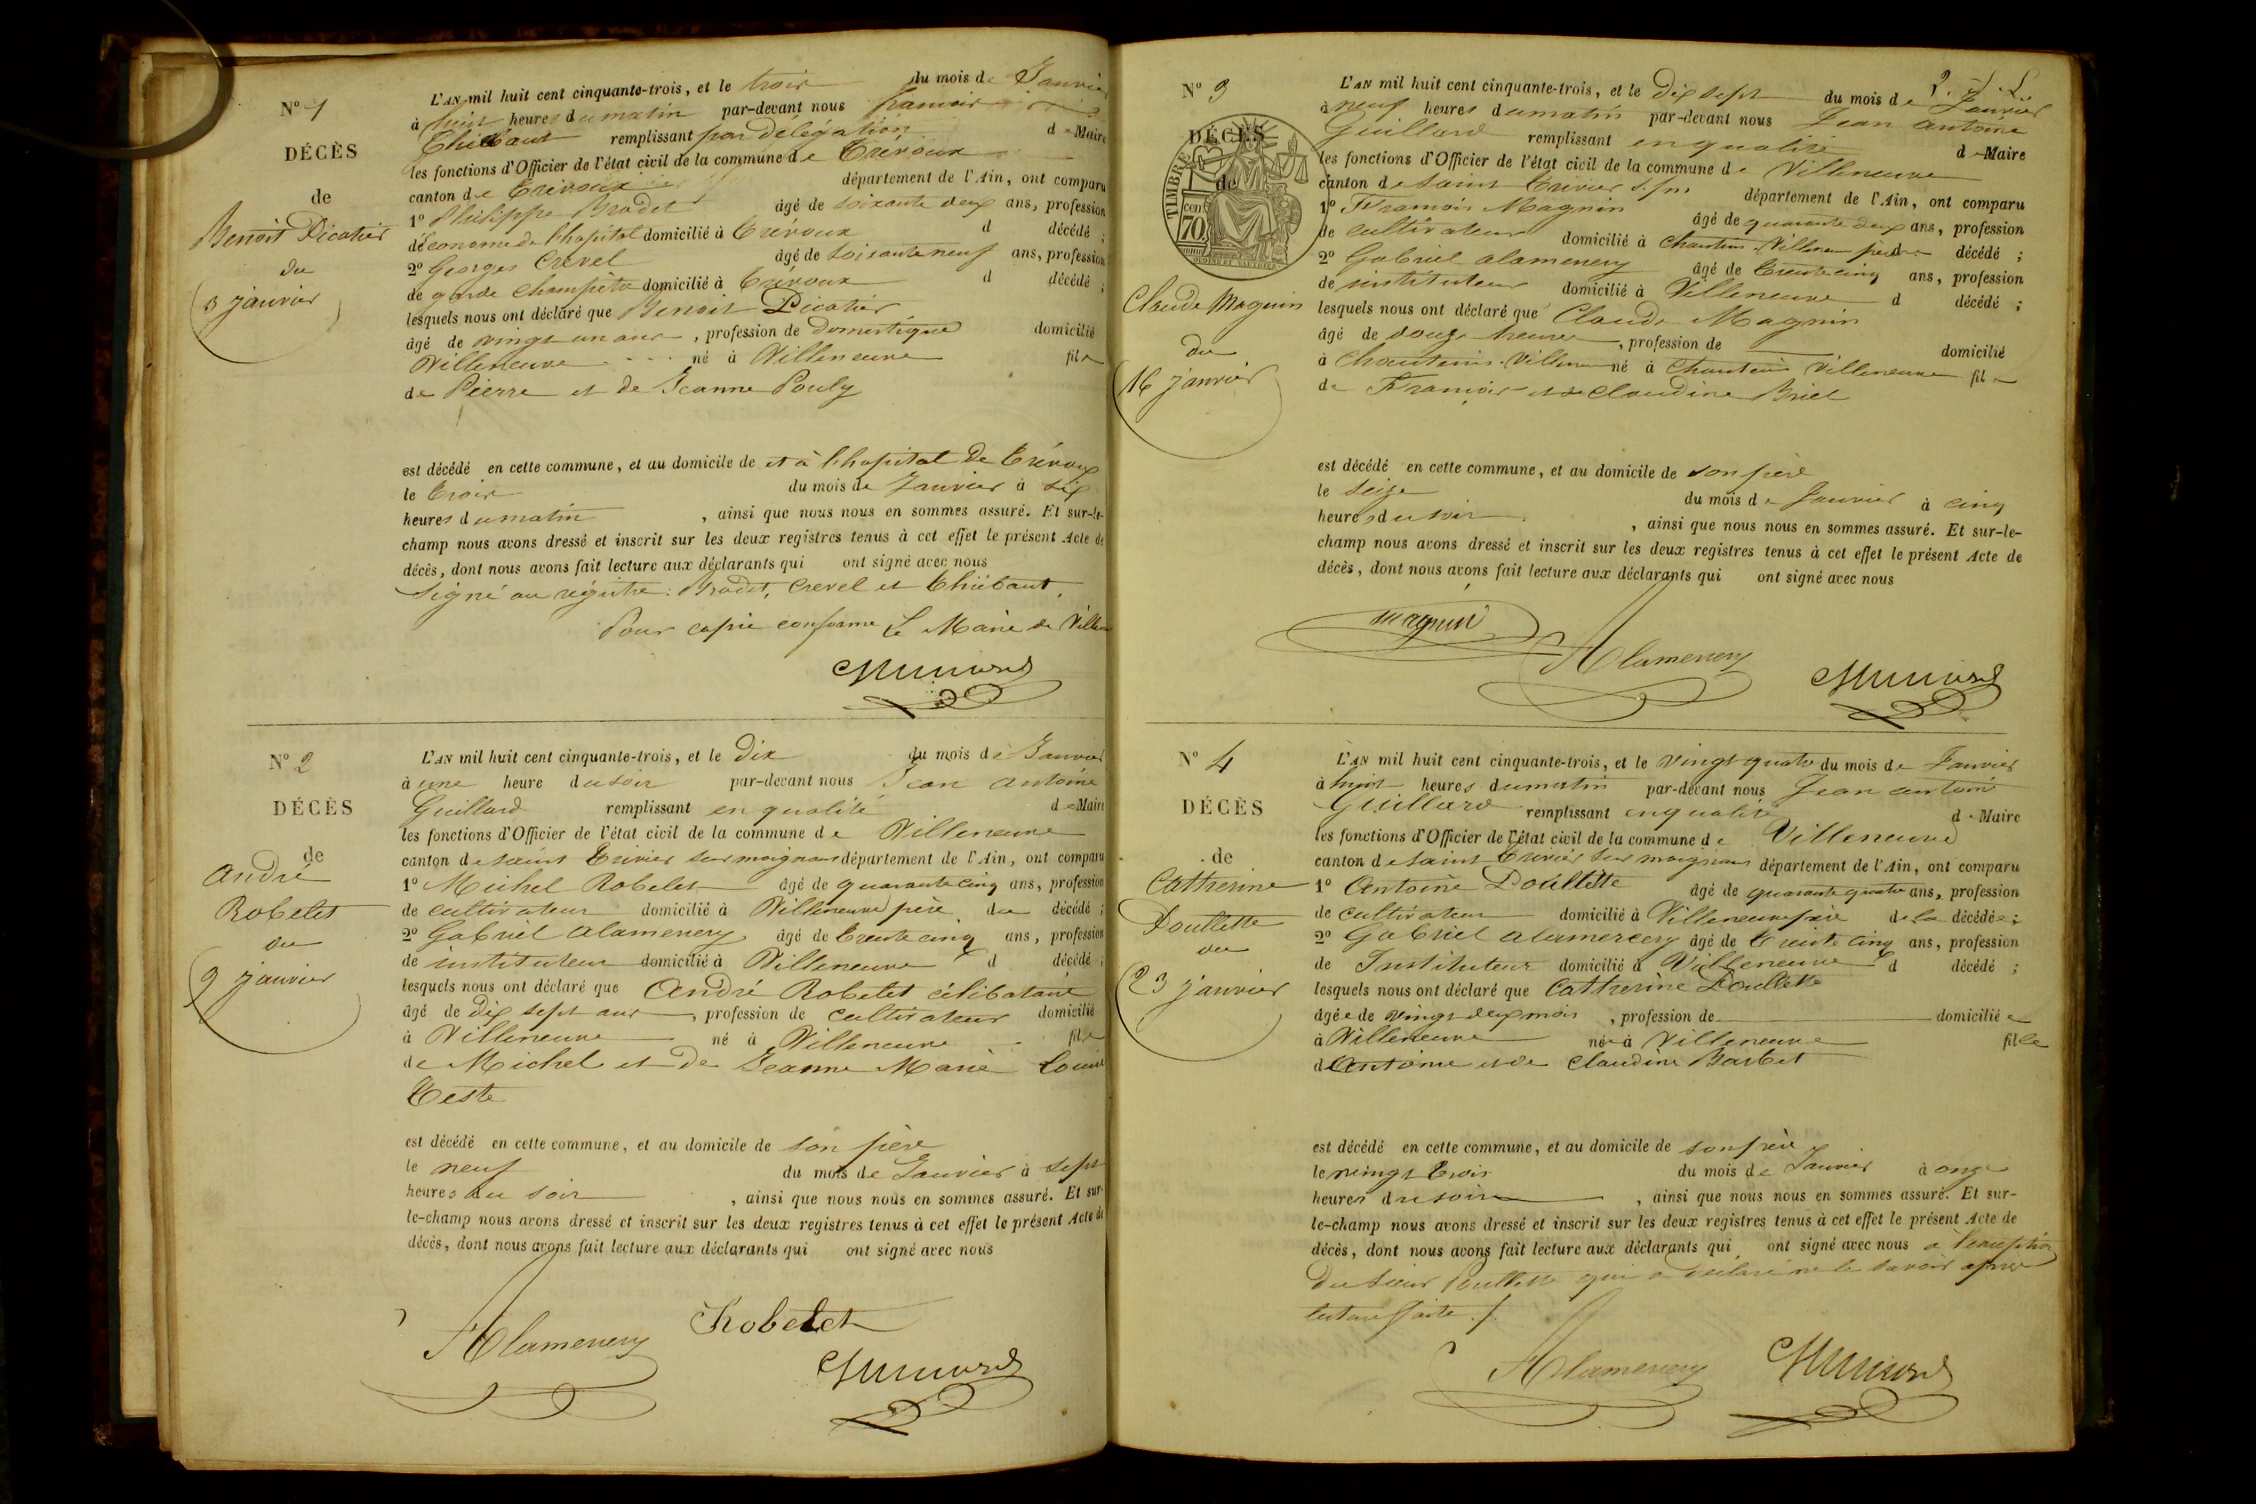 Nº 1
DÉCÈS
de
Benoit Picatier
du
3 janvier
L'AN mil huit cent cinquante-trois, et le trois du mois de Janvier
à huit heures du matin par-devant nous francois
Thiébaut remplissant par délégation de Maire
les fonctions d'Officier de l'état civil de la commune de Trévoux
canton de Trévoux département de l'Ain, ont comparu
1º Philippe Brodet âgé de soixante deux ans, profession
d'économe de l'hopital domicilié à Trévoux d décédé ;
2º Georges Crevel âgé de soixante neuf ans, profession
de garde champêtre domicilié à Trévoux d décédé ;
lesquels nous ont déclaré que Benoit Picatier
âgé de vingt un ans, profession de Domestique domicilié
Villeneuve né à Villeneuve fils
de Pierre et de Jeanne Pouly
est décédé en cette commune, et au domicile de et à l'hopital de Trévoux
le trois du mois de Janvier à six
heures du matin, ainsi que nous nous en sommes assuré. Et sur-le-
champ nous avons dressé et inscrit sur les deux registres tenus à cet effet le présent Acte de
décès, dont nous avons fait lecture aux déclarants qui ont signé avec nous
Signé au régistre : Brodet, Crevel et Thiébaut.
Pour copie conforme Le Maire de Villeneuve
Nº 2
DÉCÈS
de
André
Robelet
du
9 janvier
L'AN mil huit cent cinquante-trois, et le Dix du mois de Janvier
à une heure du soir par-devant nous Jean antoine
Guillard remplissant en qualité de Maire
les fonctions d'Officier de l'état civil de la commune de Villeneuve
canton de saint Trivier sur moignans département de l'Ain, ont comparu
1º Michel Robelet âgé de quarante cinq ans, profession
de cultivateur domicilié à Villeneuve père du décédé ;
2º Gabriel alamercery âgé de trente cinq ans, profession
de instituteur domicilié à Villeneuve d décédé ;
lesquels nous ont déclaré que André Robelet célibataire
âgé de dix sept ans, profession de cultivateur domicilié
à Villeneuve né à Villeneuve fils
de Michel et de Jeanne Marie Louise
Teste
est décédé en cette commune, et au domicile de son père
le neuf du mois de Janvier à sept
heures du soir, ainsi que nous nous en sommes assuré. Et sur-
le-champ nous avons dressé et inscrit sur les deux registres tenus à cet effet le présent Acte de
décès, dont nous avons fait lecture aux déclarants qui ont signé avec nous
Alamercery Robelet
Nº 3
DÉCÈS
de
TIMBRE
70
Claude Magnin
du
16 janvier
L'AN mil huit cent cinquante-trois, et le Dix sept du mois de Janvier
à neuf heures du matin par-devant nous Jean antoine
Guillard remplissant en qualité de Maire
les fonctions d'Officier de l'état civil de la commune de Villeneuve
canton de saint Trivier s. m. département de l'Ain, ont comparu
1º Francois Magnin âgé de quarante deux ans, profession
de cultivateur domicilié à Chanteins Villeneuve père du décédé ;
2º Gabriel alamercery âgé de trente cinq ans, profession
de instituteur domicilié à Villeneuve d décédé ;
lesquels nous ont déclaré que Claude Magnin
âgé de douze heures, profession de domicilié
à Chanteins Villeneuve né à Chanteins Villeneuve fils
de Francois et de Claudine Briel
est décédé en cette commune, et au domicile de son père
le seize du mois de Janvier à cinq
heures du soir, ainsi que nous nous en sommes assuré. Et sur-le-
champ nous avons dressé et inscrit sur les deux registres tenus à cet effet le présent Acte de
décès, dont nous avons fait lecture aux déclarants qui ont signé avec nous
magnin
Alamercery
Nº 4
DÉCÈS
de
Catherine
Doullette
du
23 janvier
L'AN mil huit cent cinquante-trois, et le vingt quatre du mois de Janvier
à huit heures du matin par-devant nous Jean antoine
Guillard remplissant en qualité de Maire
les fonctions d'Officier de l'état civil de la commune de Villeneuve
canton de saint Trivier sur moignans département de l'Ain, ont comparu
1º Antoine Doullette âgé de quarante quatre ans, profession
de cultivateur domicilié à Villeneuve père de la décédée ;
2º Gabriel alamercery âgé de trente cinq ans, profession
de Instituteur domicilié à Villeneuve d décédé ;
lesquels nous ont déclaré que Catherine Doullette
âgée de vingt deux mois, profession de domiciliée
à Villeneuve née à Villeneuve fille
d'Antoine et de Claudine Barbet
est décédé en cette commune, et au domicile de son père
le vingt trois du mois de Janvier à onze
heures du soir, ainsi que nous nous en sommes assuré. Et sur-
le-champ nous avons dressé et inscrit sur les deux registres tenus à cet effet le présent Acte de
décès, dont nous avons fait lecture aux déclarants qui ont signé avec nous à l'exception
du sieur Doullette qui a déclaré ne le savoir après
lecture faite ./.
Alamercery